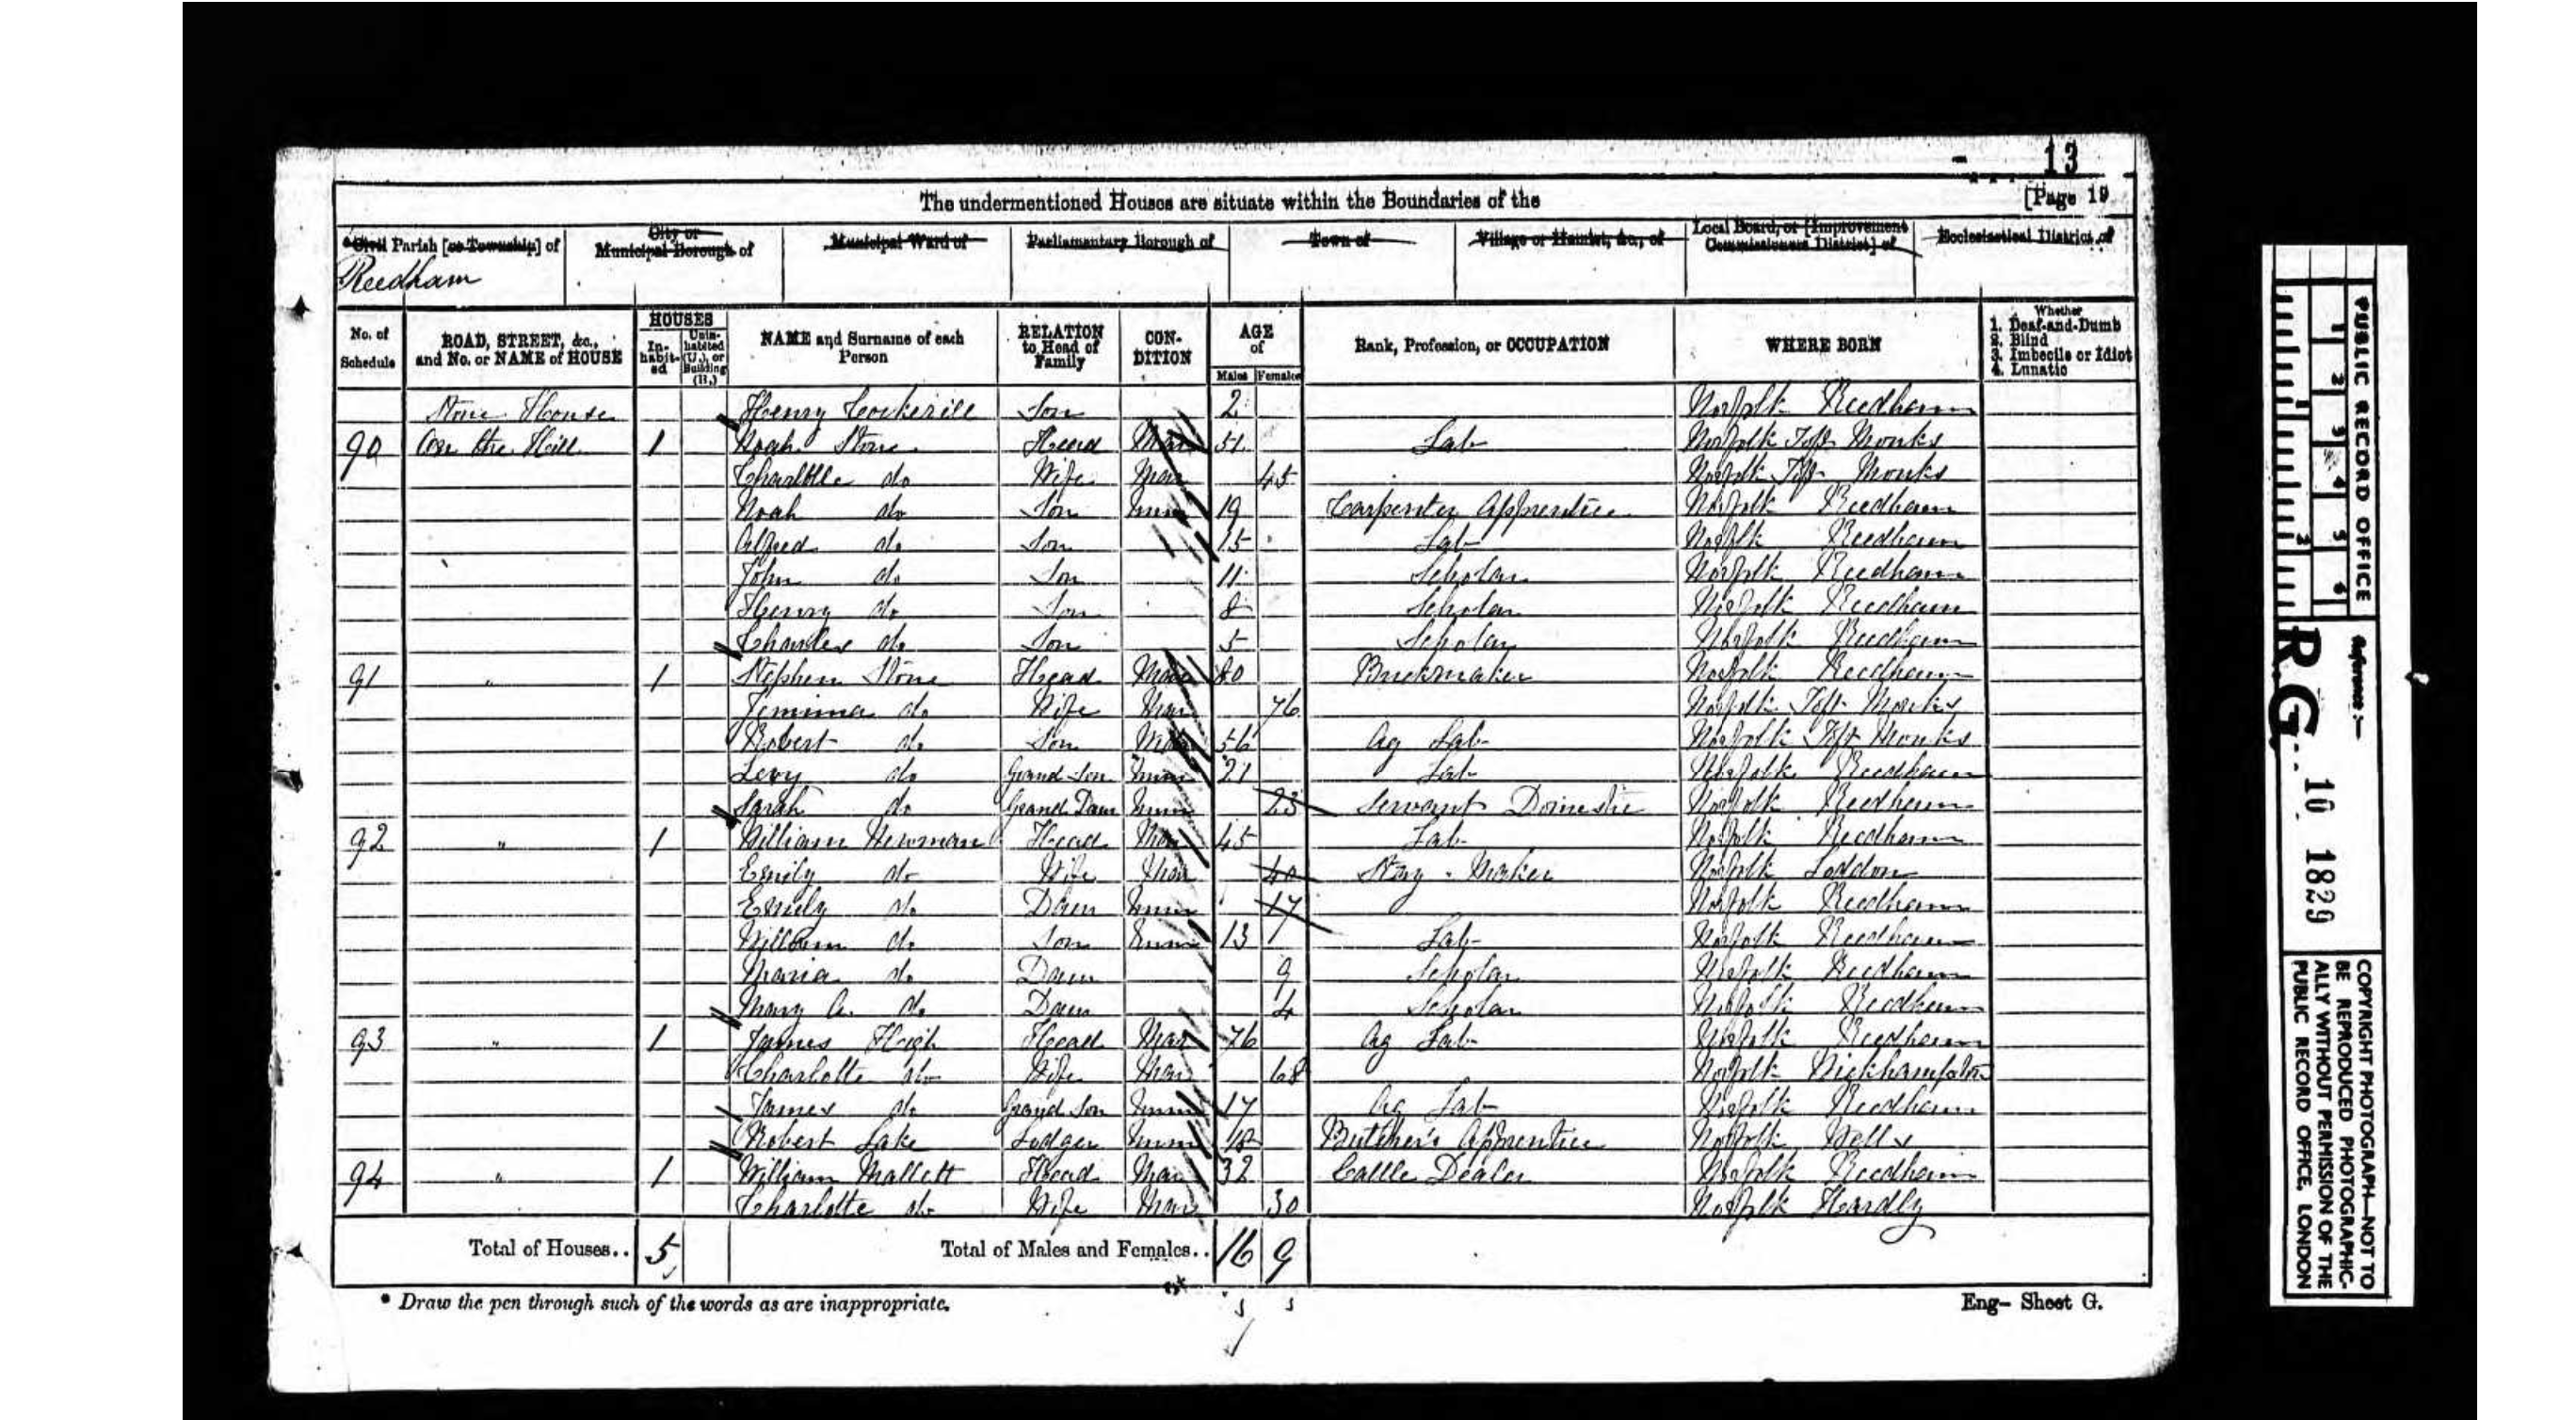 13
The undermentioned Houses are situate within the Boundaries of the [Page 19
*Civil Parish [or Township] of City or Municipal Borough of Municipal Ward of Parliamentary Borough of Town of Village or Hamlet, &c., of Local Board, or [Improvement Commissioners District] of Ecclesiastical District of
Reedham
No. of Schedule ROAD, STREET, &c., and No. or NAME of HOUSE HOUSES In-habit-ed Unin-habited (U.), or Building (B.) NAME and Surname of each Person RELATION to Head of Family CON-DITION AGE of Males Females Rank, Profession, or OCCUPATION WHERE BORN Whether 1. Deaf-and-Dumb 2. Blind 3. Imbecile or Idiot 4. Lunatic
House Henry Cockerill Son 2 Norfolk Reedham
90 On the Hill 1 Noah Stone Head Mar 51 Lab Norfolk Toft Monks
Charlotte do Wife Mar 45 Norfolk Toft Monks
Noah do Son Unm 19 Carpenter Apprentice Norfolk Reedham
Alfred do Son 15 Lab Norfolk Reedham
John do Son 11 Scholar Norfolk Reedham
Henry do Son 8 Scholar Norfolk Reedham
Charles do Son 5 Scholar Norfolk Reedham
91 " 1 Stephen Stone Head Mar 80 Brickmaker Norfolk Reedham
Jemima do Wife Mar 76 Norfolk Toft Monks
Robert do Son 56 Ag Lab Norfolk Toft Monks
Levy do Grand Son Unm 21 Lab Norfolk Reedham
Sarah do Grand Daur Unm 23 Servant Domestic Norfolk Reedham
92 " 1 William Newman Head Mar 45 Lab Norfolk Reedham
Emily do Wife Mar 40 Stay Maker Norfolk Loddon
Emily do Daur Unm 17 Norfolk Reedham
William do Son Unm 13 Lab Norfolk Reedham
Maria do Daur 9 Scholar Norfolk Reedham
Mary A. do Daur 4 Scholar Norfolk Reedham
93 " 1 James High Head Mar 76 Ag Lab Norfolk Reedham
Charlotte do Wife Mar 68 Norfolk Wickhampton
James do Grand Son Unm 17 Ag Lab Norfolk Reedham
Robert Lake Lodger Unm 18 Butcher's Apprentice Norfolk Wells
94 " 1 William Mallett Head Mar 32 Cattle Dealer Norfolk Reedham
Charlotte do Wife Mar 30 Norfolk Hardly
Total of Houses.. 5 Total of Males and Females.. 16 9
* Draw the pen through such of the words as are inappropriate.
Eng- Sheet G.
PUBLIC RECORD OFFICE
1 2 3 4 5 6
Reference :-
R.G. 10 1829
COPYRIGHT PHOTOGRAPH-NOT TO
BE REPRODUCED PHOTOGRAPHIC-
ALLY WITHOUT PERMISSION OF THE
PUBLIC RECORD OFFICE, LONDON